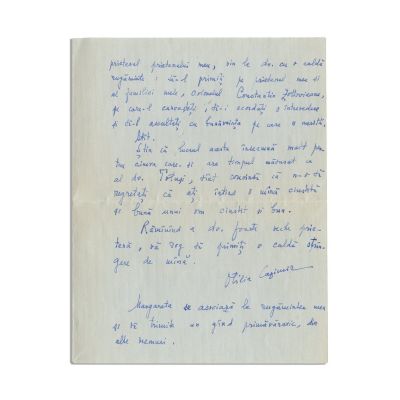 prietenul prietenului meu, vin la dv. cu o caldă
rugăminte: să-l primiți pe prietenul meu și
al familiei mele, avocatul Constantin
pe care-l cunoașteți, să-i acordați o întrevedere
și să-l ascultați cu bunăvoința pe care o merită.
Atît.
Știu că lucrul acesta înseamnă mult pen
tru cineva care-și are timpul măsurat ca
al dv. Totuși, sînt convinsă că n-o să
regretați că ați întins o mînă cinstită
și bună unui om cinstit și bun.
Rămînînd a dv. foarte veche prie-
tenă, vă rog să primiți o caldă strîn
gere de mînă.
Otilia Cazimir
Margareta se asociază la rugămintea mea
și vă trimite un gînd primăvăratic, din
alte vremuri.